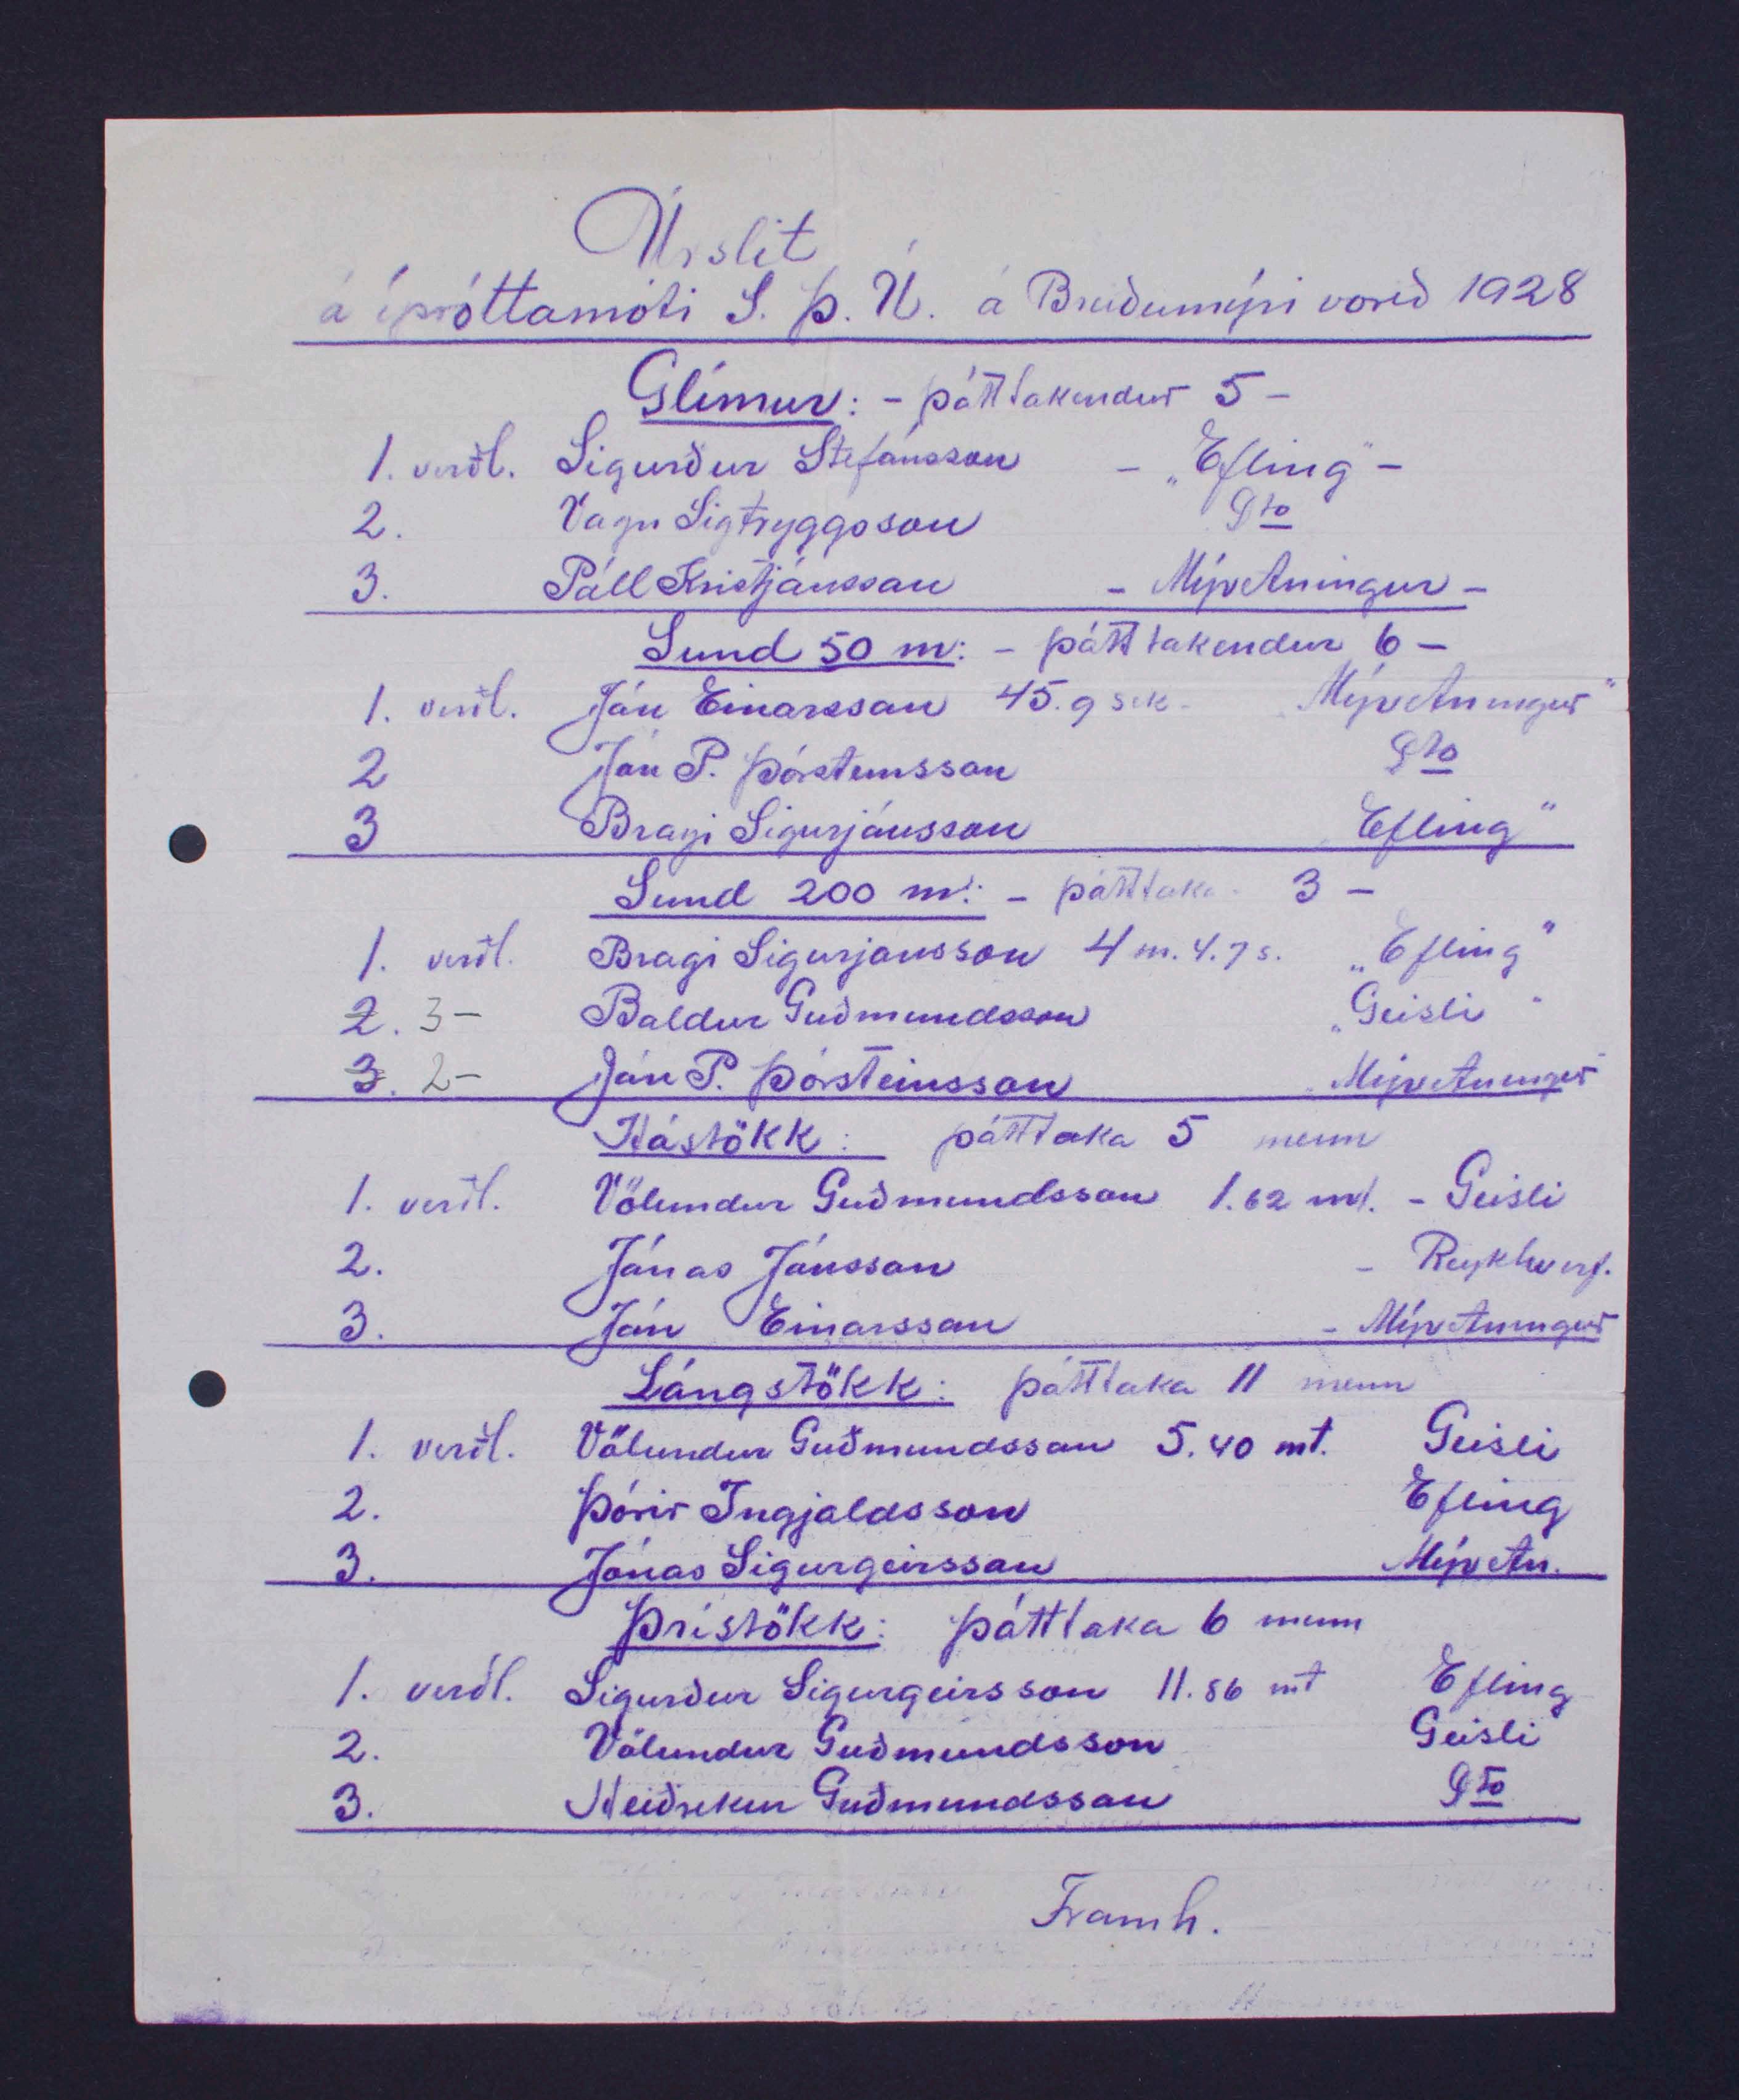 Úrslit
á íþróttamóti S. Þ. U. á Breiðumýri vorið 1928
Glímur: - þátttakendur 5 -
1. verðl. Sigurður Stefánsson - „Efling" -
2. Vagn Sigtryggsson Dto
3. Páll Kristjánsson - Mývetningur -
Sund 50 m: - þátttakendur 6 -
1. verðl. Jón Einarsson 45.9 sek. Mývetningur"
2 Jón P. Þórsteinsson Dto
3 Bragi Sigurjónsson Efling"
Sund 200 m: - þátttaka 3 -
1. verðl. Bragi Sigurjonsson 4 m. 4.7 s. „Efling"
2. 3- Baldur Guðmundsson „Geisli"
3. 2- Jón P. Þórsteinsson Mývetningur
Hástökk: þátttaka 5 menn
1. verðl. Völundur Guðmundsson 1.62 mt. - Geisli
2. Jónas Jónsson - Reykhverf.
3. Jón Einarsson - Mývetningur
Lángstökk: þátttaka 11 menn
1. verðl. Völundur Guðmundsson 5.40 mt. Geisli
2. Þórir Ingjaldsson Efling
3. Jónas Sigurgeirsson Mývetn.
Þrístökk: þátttaka 6 menn
1. verðl. Sigurður Sigurgeirsson 11.86 mt Efling
2. Völundur Guðmundsson Geisli
3. Heiðrekur Guðmundsson Dto
Framh.